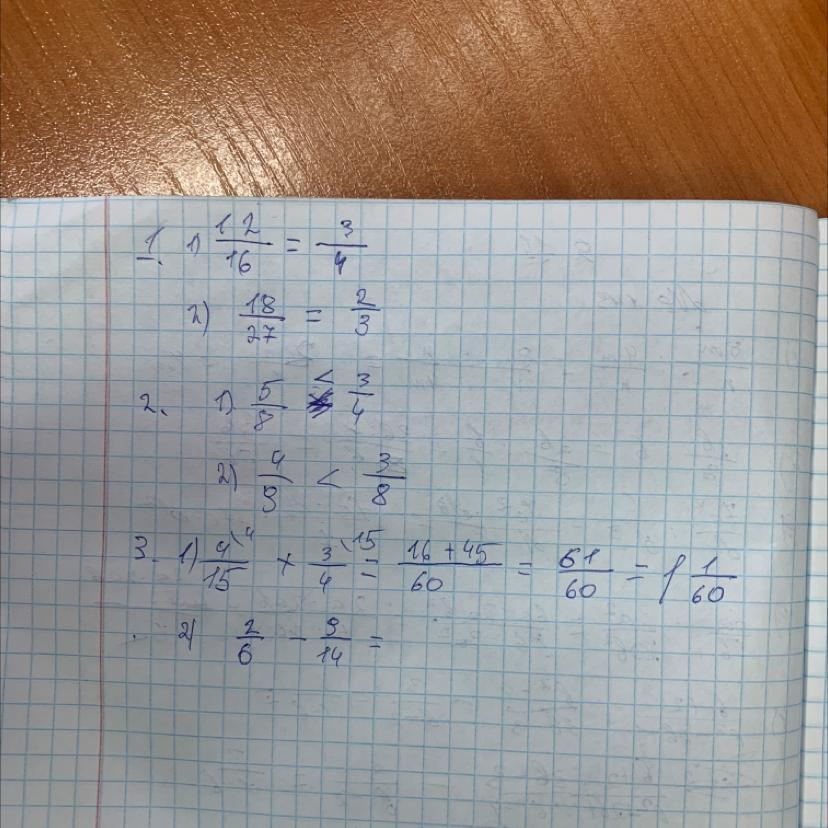 1. 1) 12/16 = 3/4
2) 18/27 = 2/3
2. 1) 5/8 < 3/4
2) 4/9 < 3/8
3. 1) 4/15 \4 + 3/4 \15 = 16+45/60 = 61/60 = 1 1/60
2) 2/6 - 9/14 =